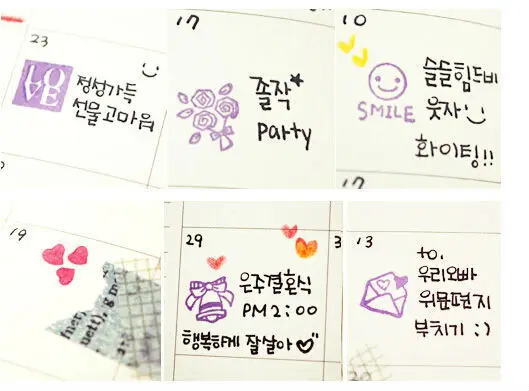 23
LOVE
정성가득
선물고마워
17
졸작
party
10
슬슬힘드네
SMILE
웃자
화이팅!!
17
19
29
3
은주결혼식
PM2:00
행복하게 잘살아
13
to.
우리오빠
위문편지
부치기 :)